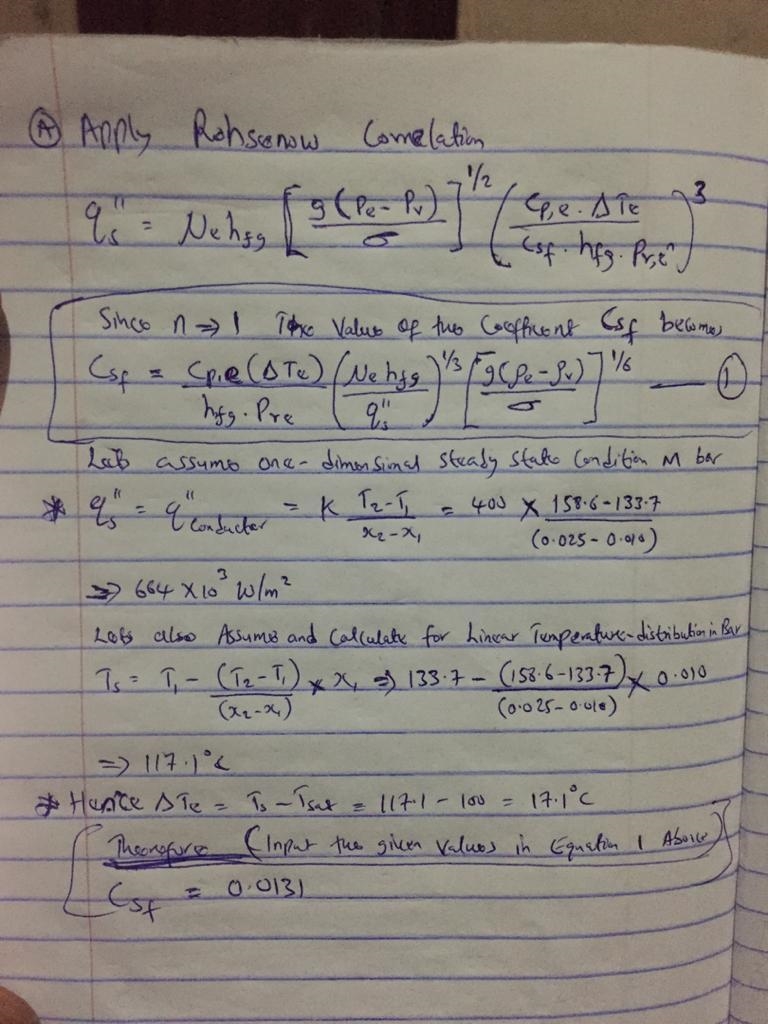 Ⓐ Apply Rohsenow Correlation
q"s = Ne hfg [g(ρe - ρv) / σ]^1/2 (Cp,e . ΔTe / Csf . hfg . Pr,e^n)^3
Since n ⇒ 1 The Value of the Coefficient Csf becomes
Csf = Cp,e (ΔTe) / hfg . Pre (Ne hfg / q"s)^1/3 [g(ρe - ρv) / σ]^1/6 — ①
Lets assume one-dimensional steady state Condition M bar
* q"s = q"Conductor = K T2-T1 / x2-x1 = 400 × 158.6-133.7 / (0.025-0.010)
⇒ 664 × 10^3 W/m^2
Lets also Assume and Calculate for Linear Temperature-distribution in Bar
Ts = T1 - (T2-T1) / (x2-x1) × x1 ⇒ 133.7 - (158.6-133.7) / (0.025-0.010) × 0.010
⇒ 117.1°C
* Hence ΔTe = Ts - Tsat = 117.1 - 100 = 17.1°C
Therefore (Input the given Values in Equation 1 Above)
Csf = 0.0131